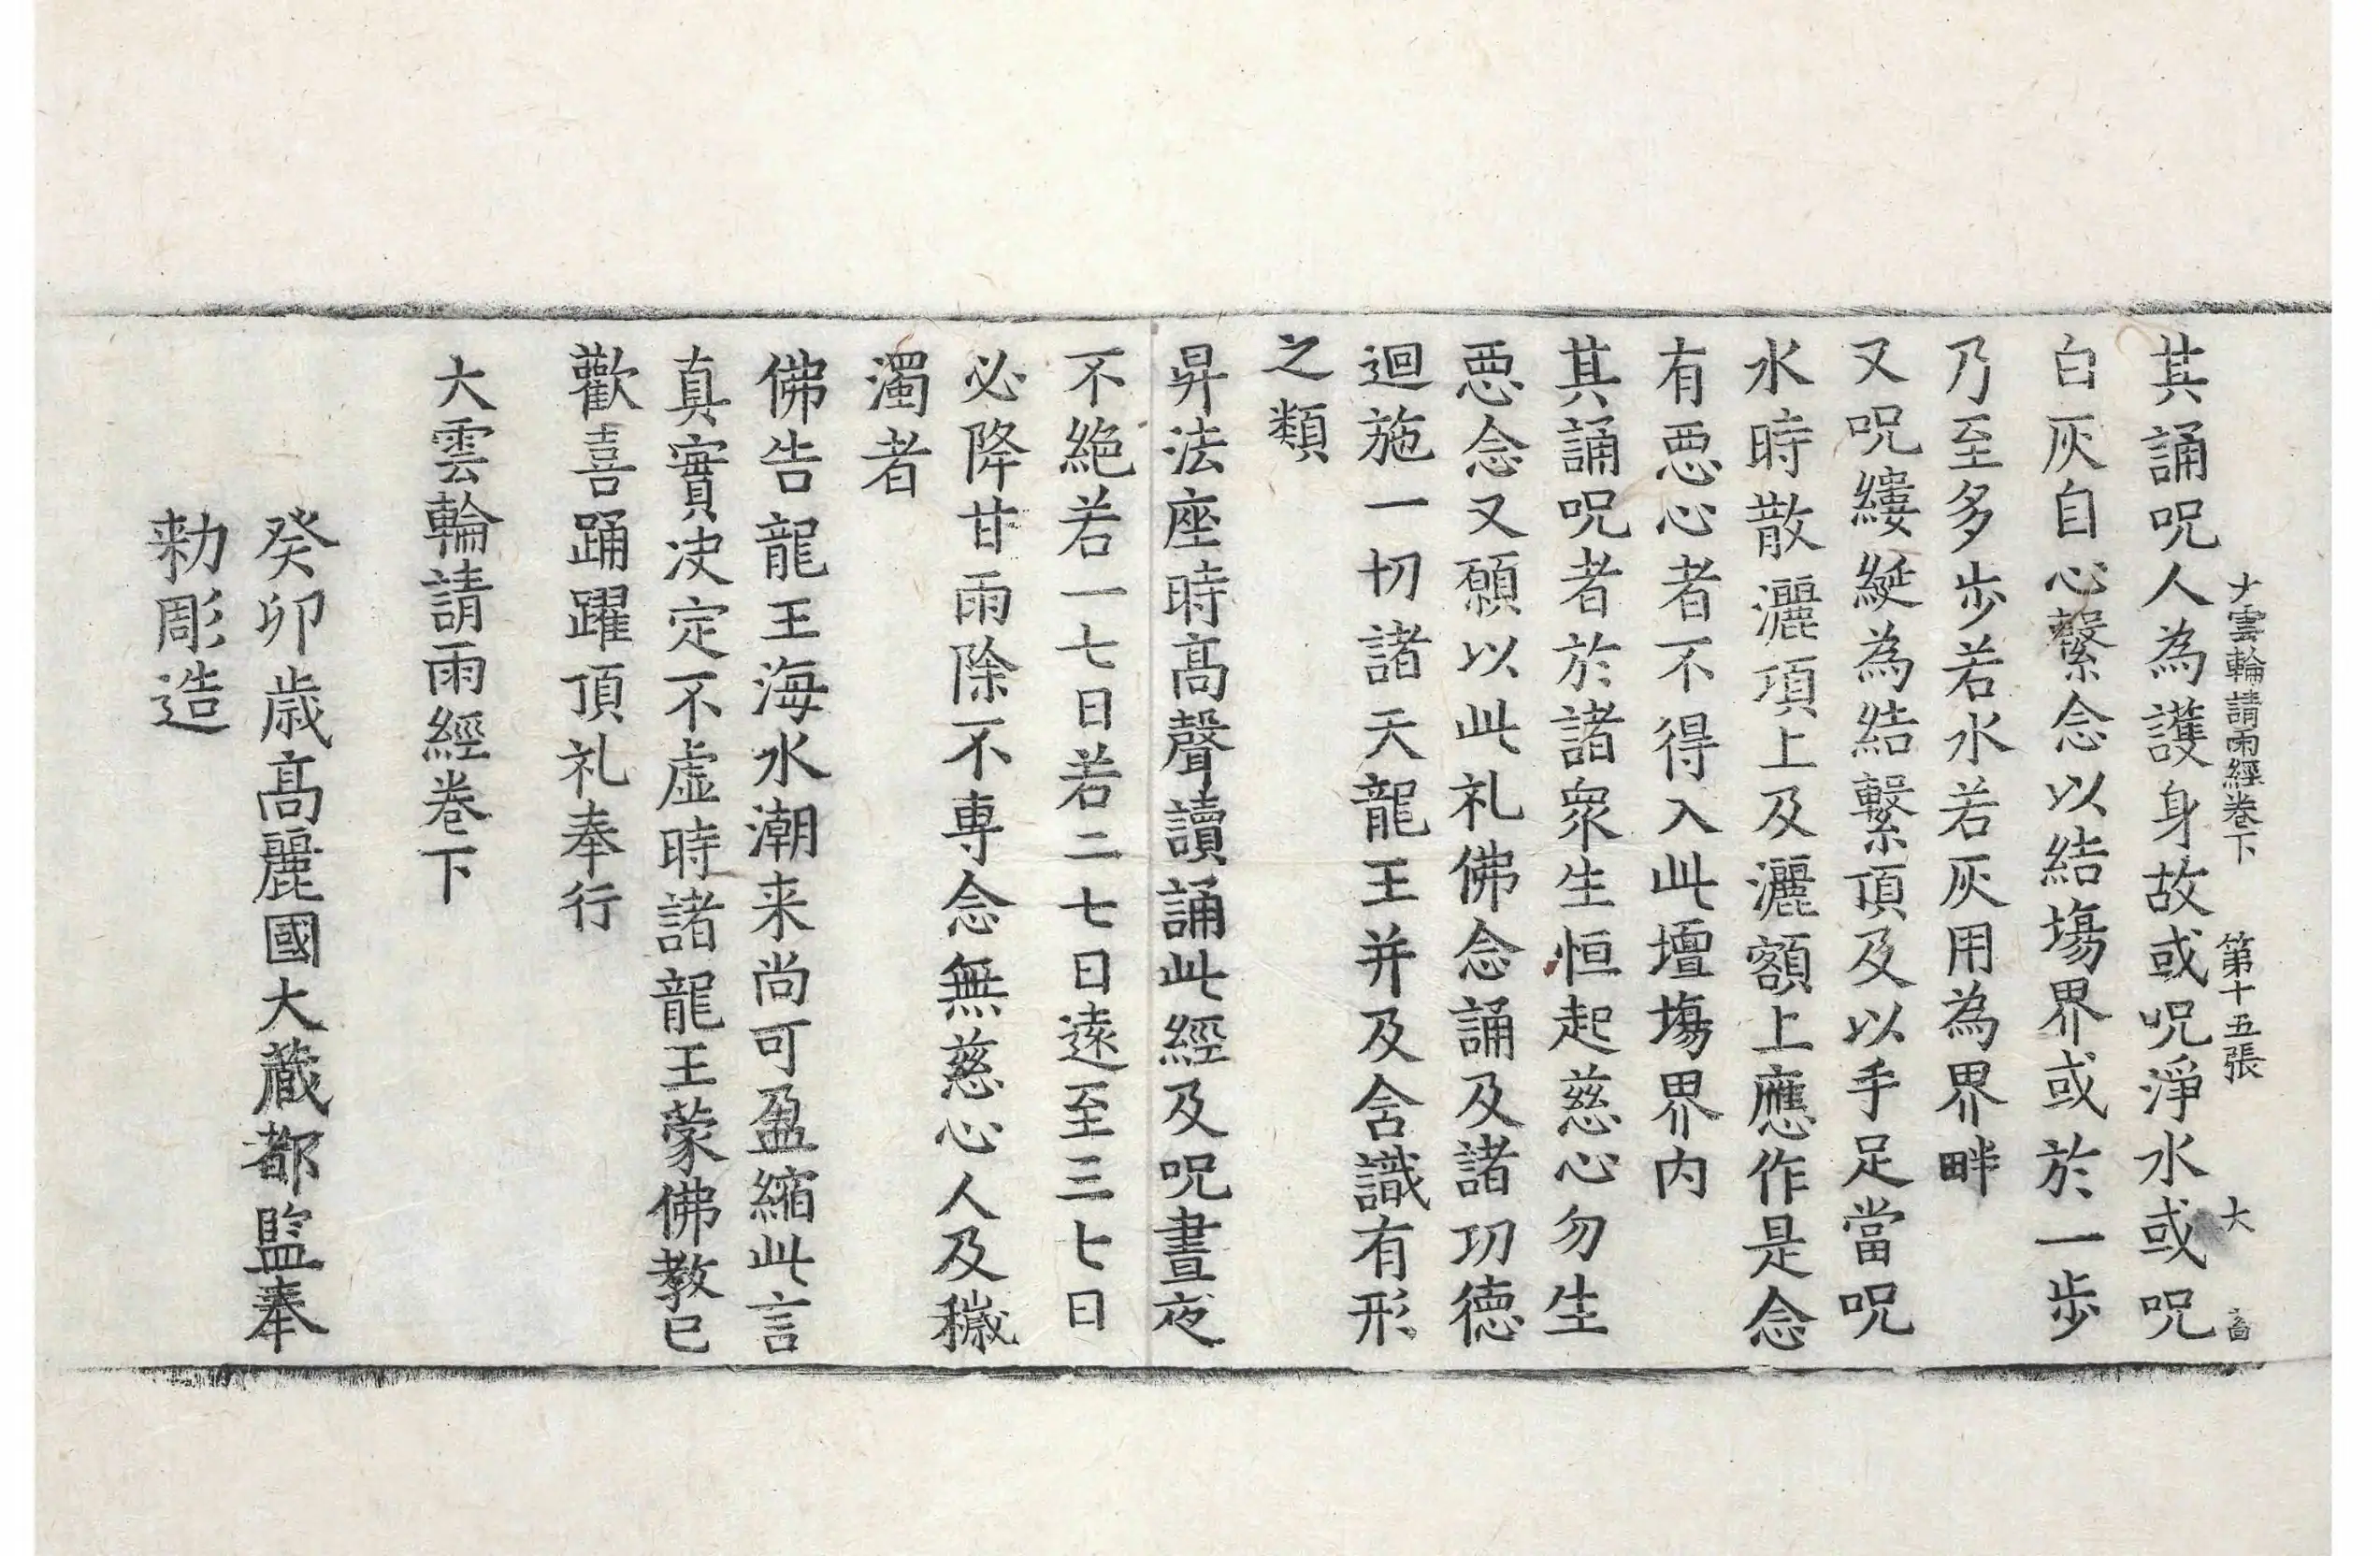 大雲輪請雨經卷下 第十五張 大
其誦呪人為護身故或呪淨水或呪
白灰自心繫念以結場界或於一步
乃至多步若水若灰用為界畔
又呪縷綖為結繫頂及以手足當呪
水時散灑項上及灑額上應作是念
有惡心者不得入此壇場界內
其誦呪者於諸衆生恒起慈心勿生
惡念又願以此礼佛念誦及諸功德
迴施一切諸天龍王并及含識有形
之類
昇法座時高聲讀誦此經及呪晝夜
不絶若一七日若二七日遠至三七日
必降甘雨除不專念無慈心人及穢
濁者
佛告龍王海水潮来尚可盈縮此言
真實決定不虛時諸龍王蒙佛教已
歡喜踊躍頂礼奉行
大雲輪請雨經卷下
癸卯歲高麗國大藏都監奉
勑彫造